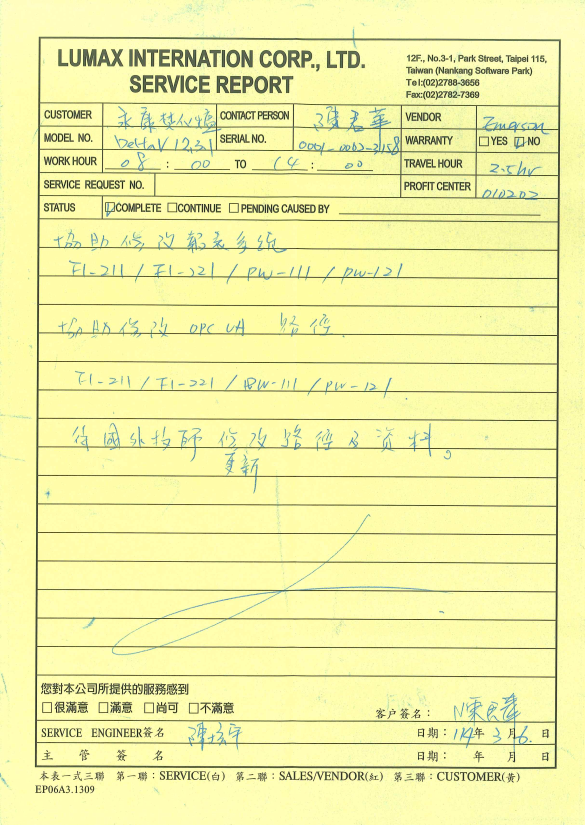 LUMAX INTERNATION CORP., LTD.
SERVICE REPORT
12F., No.3-1, Park Street, Taipei 115,
Taiwan (Nankang Software Park)
Tel:(02)2788-3656
Fax:(02)2782-7369
CUSTOMER 永康焚化爐 CONTACT PERSON 陳君華 VENDOR Emerson
MODEL NO. DeltaV 12.3.1 SERIAL NO. 0001-0003-3158 WARRANTY □YES ☑NO
WORK HOUR 08 : 00 TO 14 : 00 TRAVEL HOUR 2.5hr
SERVICE REQUEST NO. PROFIT CENTER 010202
STATUS ☑COMPLETE □CONTINUE □PENDING CAUSED BY
協助修改報表系統
FI-211 / FI-221 / PW-111 / PW-121
協助修改 OPC UA 路徑.
FI-211 / FI-221 / PW-111 / PW-121
待國外技師 修改路徑及資料。
更新
您對本公司所提供的服務感到
□很滿意 □滿意 □尚可 □不滿意
客戶簽名: 陳君華
SERVICE ENGINEER簽名 日期: 114年 3月 6日
主 管 簽 名 日期: 年 月 日
本表一式三聯 第一聯:SERVICE(白) 第二聯:SALES/VENDOR(紅) 第三聯:CUSTOMER(黃)
EP06A3.1309